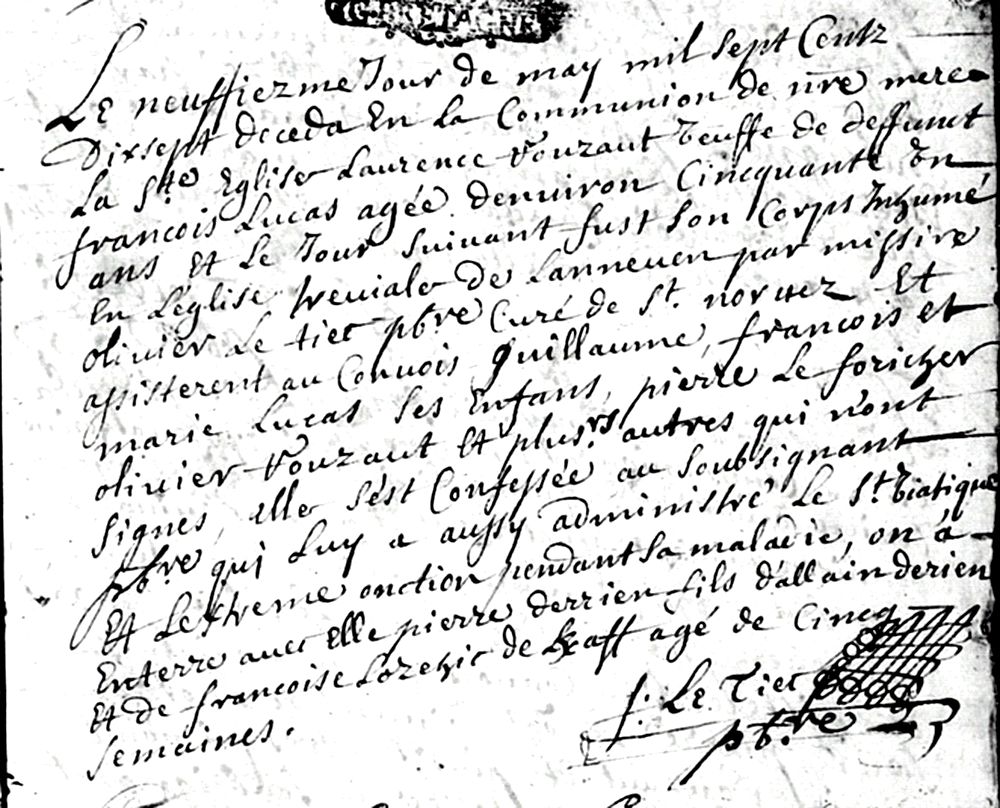 Le neuffiezme Jour de may mil sept Centz
Dixsept deceda En La Communion de nre mere
La Ste Eglise Laurence Vouzaut veuffe de deffunct
francois Lucas agée denuiron Cincquante Un
ans et Le Jour suiuant fust son Corps Inhumé
En Léglise treuiale de Lanneuen par missire
oliuier Le tiec pbre Curé de St. noruez Et
assisterent au Conuois Guillaume, francois et
marie Lucas ses Enfans, pierre Le foricher
oliuier Vouzaut et plusrs autres qui n'ont
signes, elle s'est Confessée au soubsignant
pbre qui Luy a aussy administré Le St. Viatique
Et Lextreme onction pendant sa maladie, on á
Enterre auec Elle pierre derrien fils d'allain derien
Et de francoise Lozehic de agé de Cincq
semaines.
f. Le Tiec
pb.re